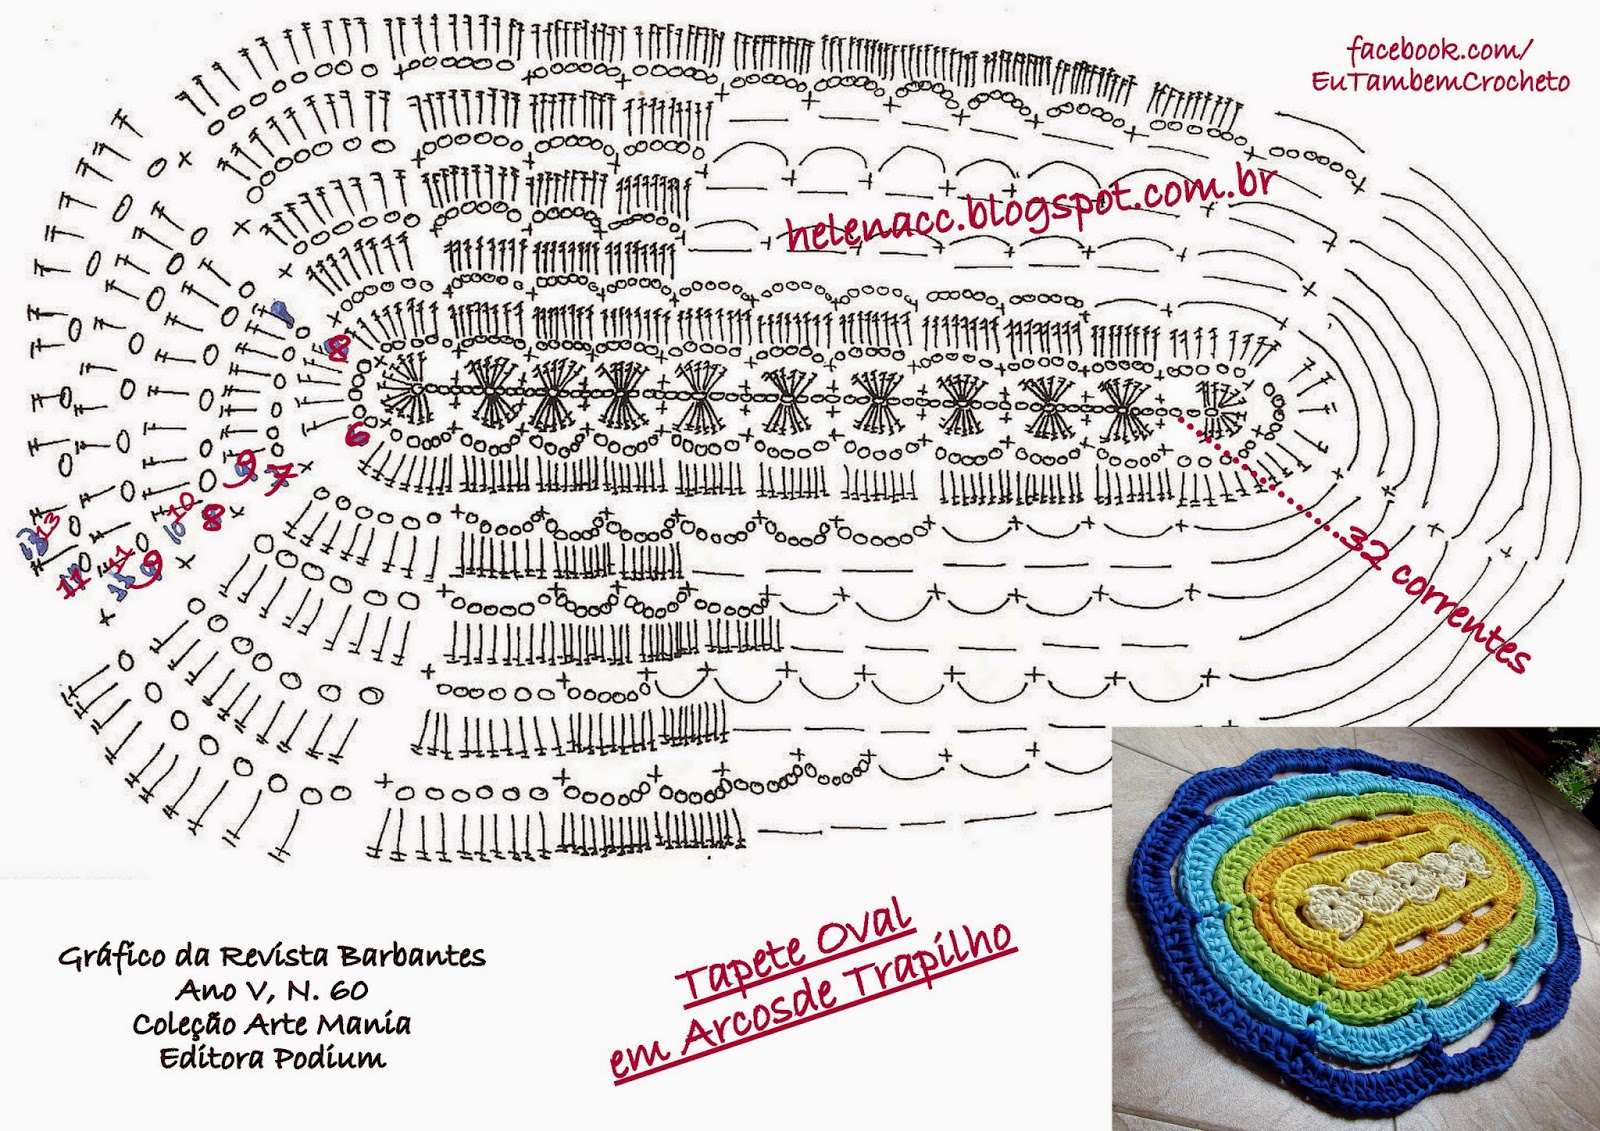 facebook.com/
EuTambemCrocheto
helenacc.blogspot.com.br
8
6
9 7
10
8
13
11
9
11
32 correntes
Tapete Oval
em Arcosde Trapilho
Gráfico da Revista Barbantes
Ano V, N. 60
Coleção Arte Mania
Editora Podium